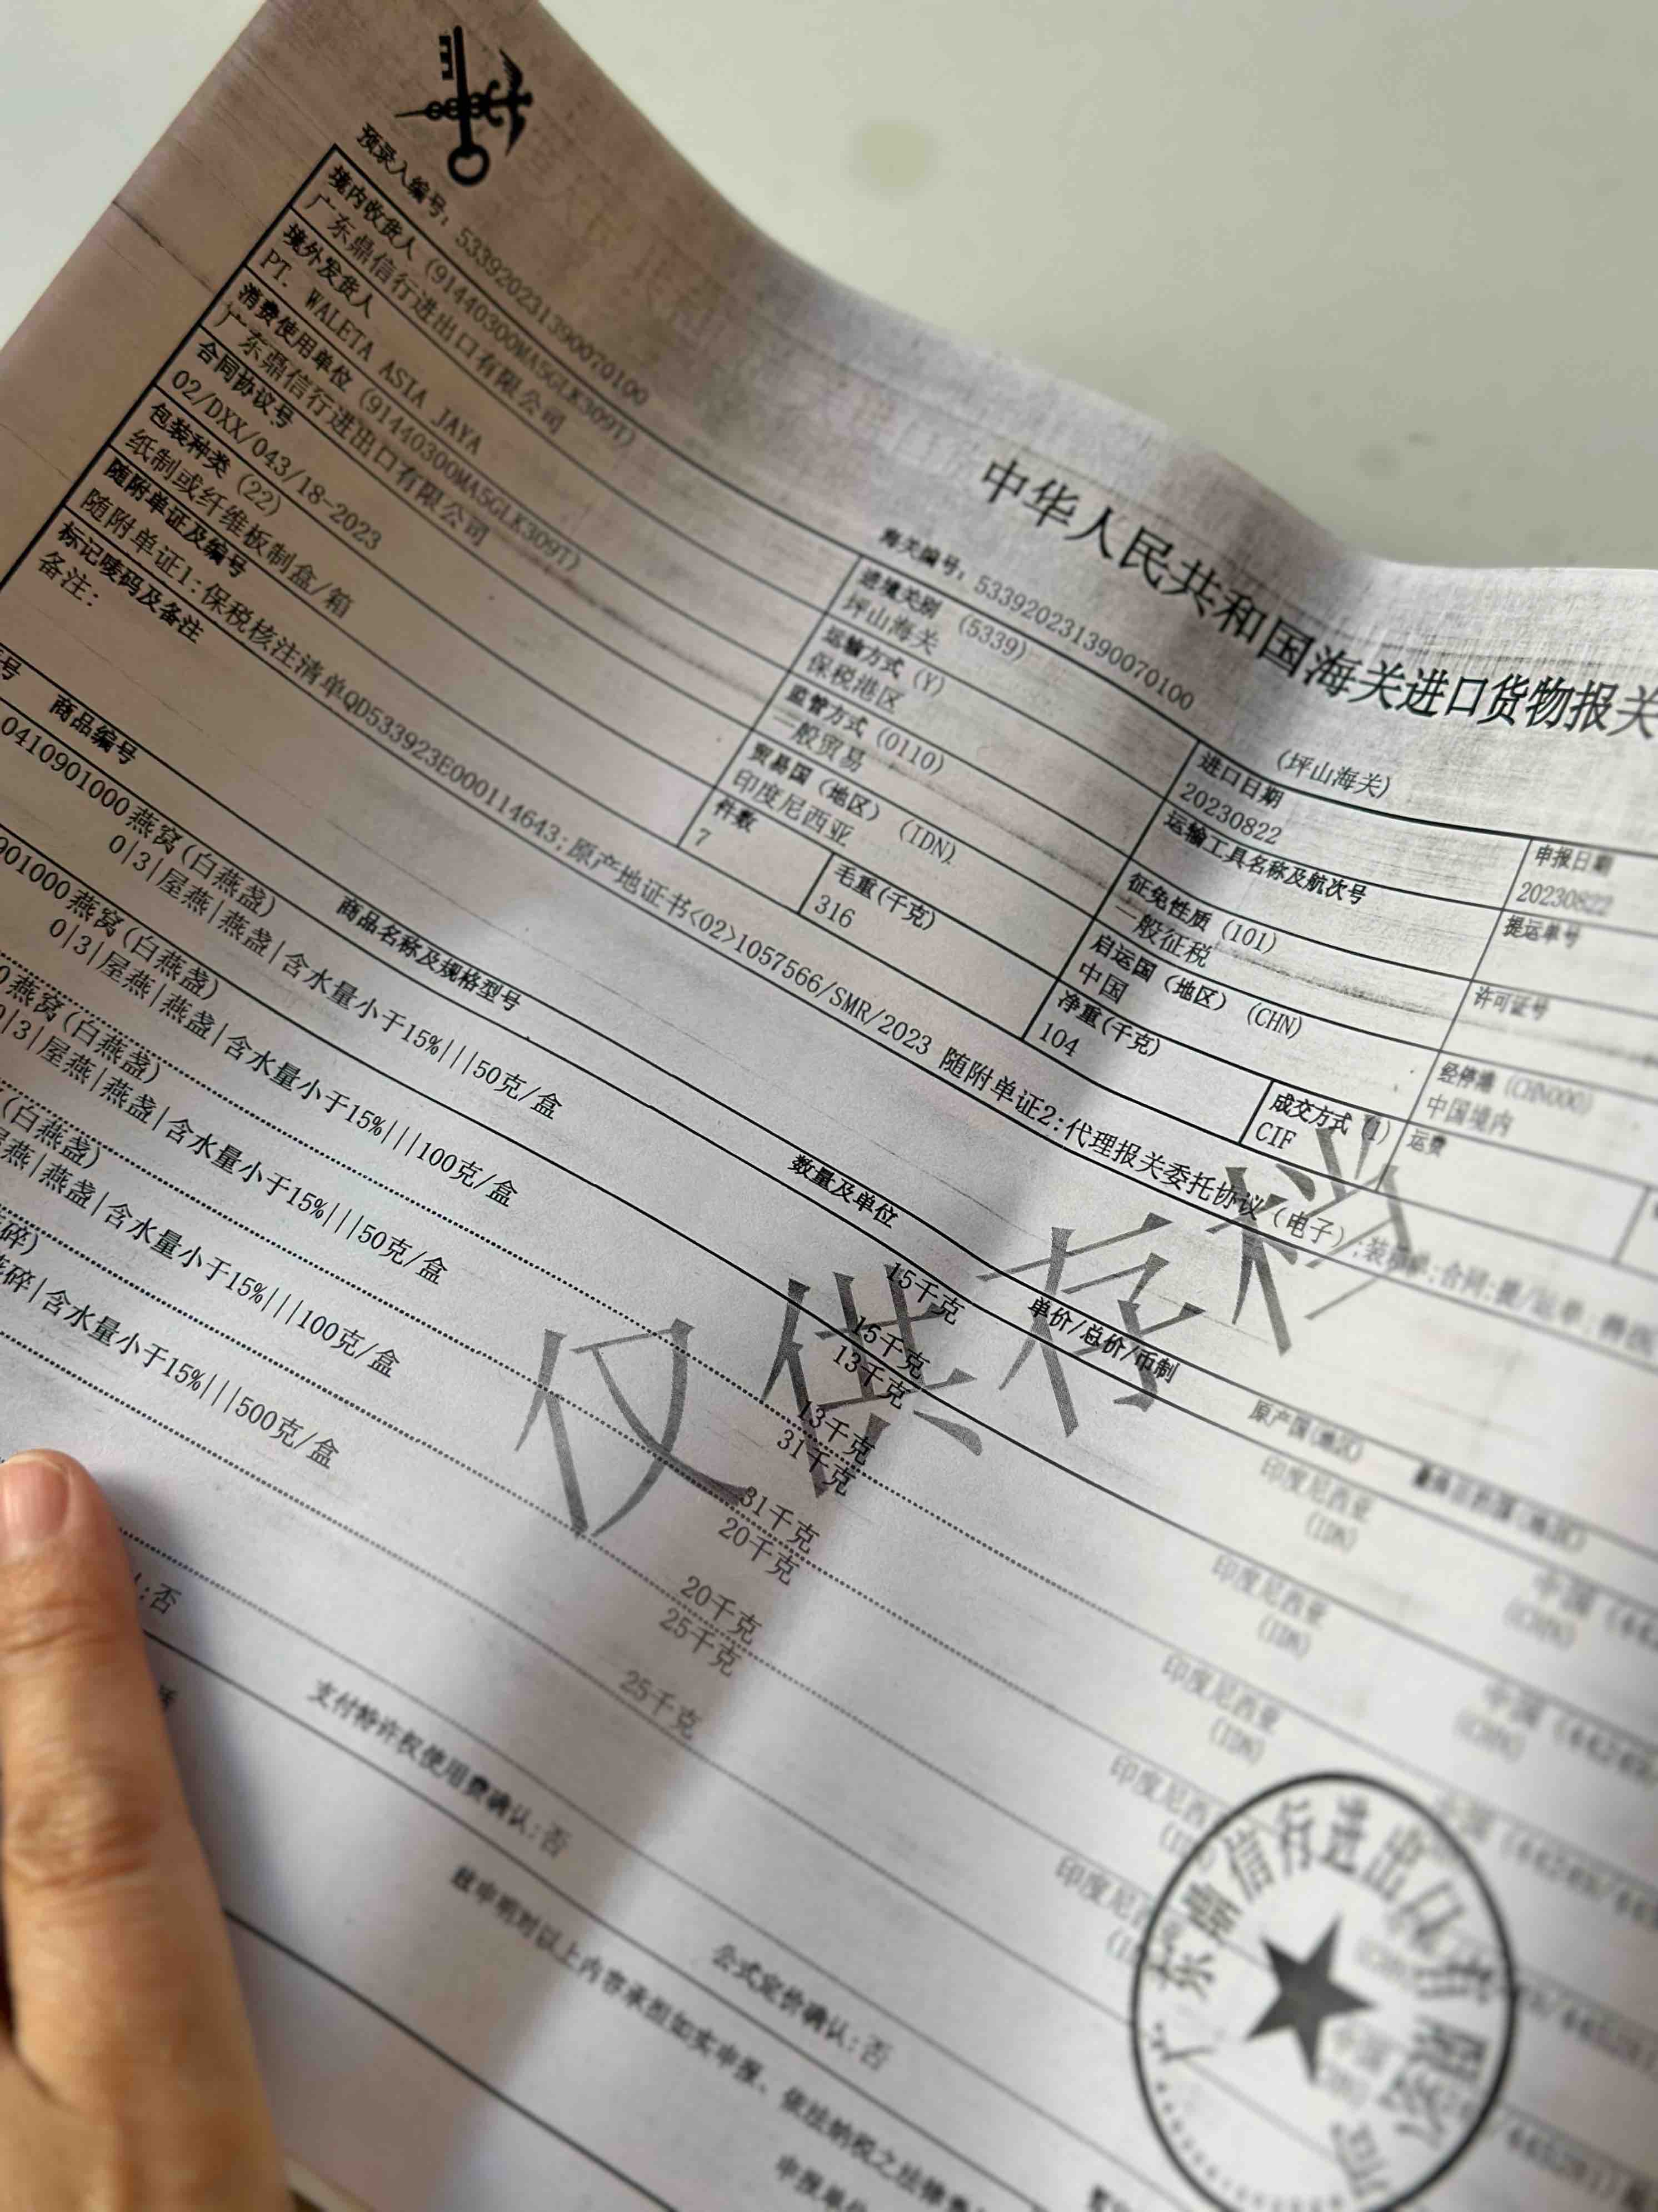 中华人民共和国海关进口货物报关
预录入编号：533920231390070100
海关编号：533920231390070100
(坪山海关)
境内收货人 (91440300MA5GLK309T)
广东鼎信行进出口有限公司
进境关别 (5339)
坪山海关
进口日期
20230822
申报日期
20230822
境外发货人
PT. WALETA ASIA JAYA
运输方式 (Y)
保税港区
运输工具名称及航次号
提运单号
消费使用单位 (91440300MA5GLK309T)
广东鼎信行进出口有限公司
监管方式 (0110)
一般贸易
征免性质 (101)
一般征税
许可证号
合同协议号
02/DXX/043/18-2023
贸易国（地区） (IDN)
印度尼西亚
启运国（地区） (CHN)
中国
经停港 (CHN000)
中国境内
包装种类 (22)
纸制或纤维板制盒/箱
件数
7
毛重(千克)
316
净重(千克)
104
成交方式 (1)
CIF
运费
随附单证及编号
随附单证1:保税核注清单QD533923E000114643;原产地证书<02>1057566/SMR/2023 随附单证2:代理报关委托协议（电子）;装箱单;合同;提/运单;
标记唛码及备注
备注:
号 商品编号 商品名称及规格型号 数量及单位 单价/总价/币制 原产国(地区)
0410901000 燕窝(白燕盏)
0|3|屋燕|燕盏|含水量小于15%|||50克/盒
15千克
15千克
印度尼西亚
(IDN)
901000 燕窝(白燕盏)
0|3|屋燕|燕盏|含水量小于15%|||100克/盒
13千克
13千克
印度尼西亚
(IDN)
0 燕窝(白燕盏)
0|3|屋燕|燕盏|含水量小于15%|||50克/盒
31千克
31千克
印度尼西亚
(IDN)
(白燕盏)
屋燕|燕盏|含水量小于15%|||100克/盒
20千克
20千克
印度尼西
碎)
碎|含水量小于15%|||500克/盒
25千克
25千克
印度尼
仅供存档
:否
支付特许权使用费确认:否
公式定价确认:否
兹申明对以上内容承担如实申报、依法纳税之法律
申报单位
广东鼎信行进出口有限公司